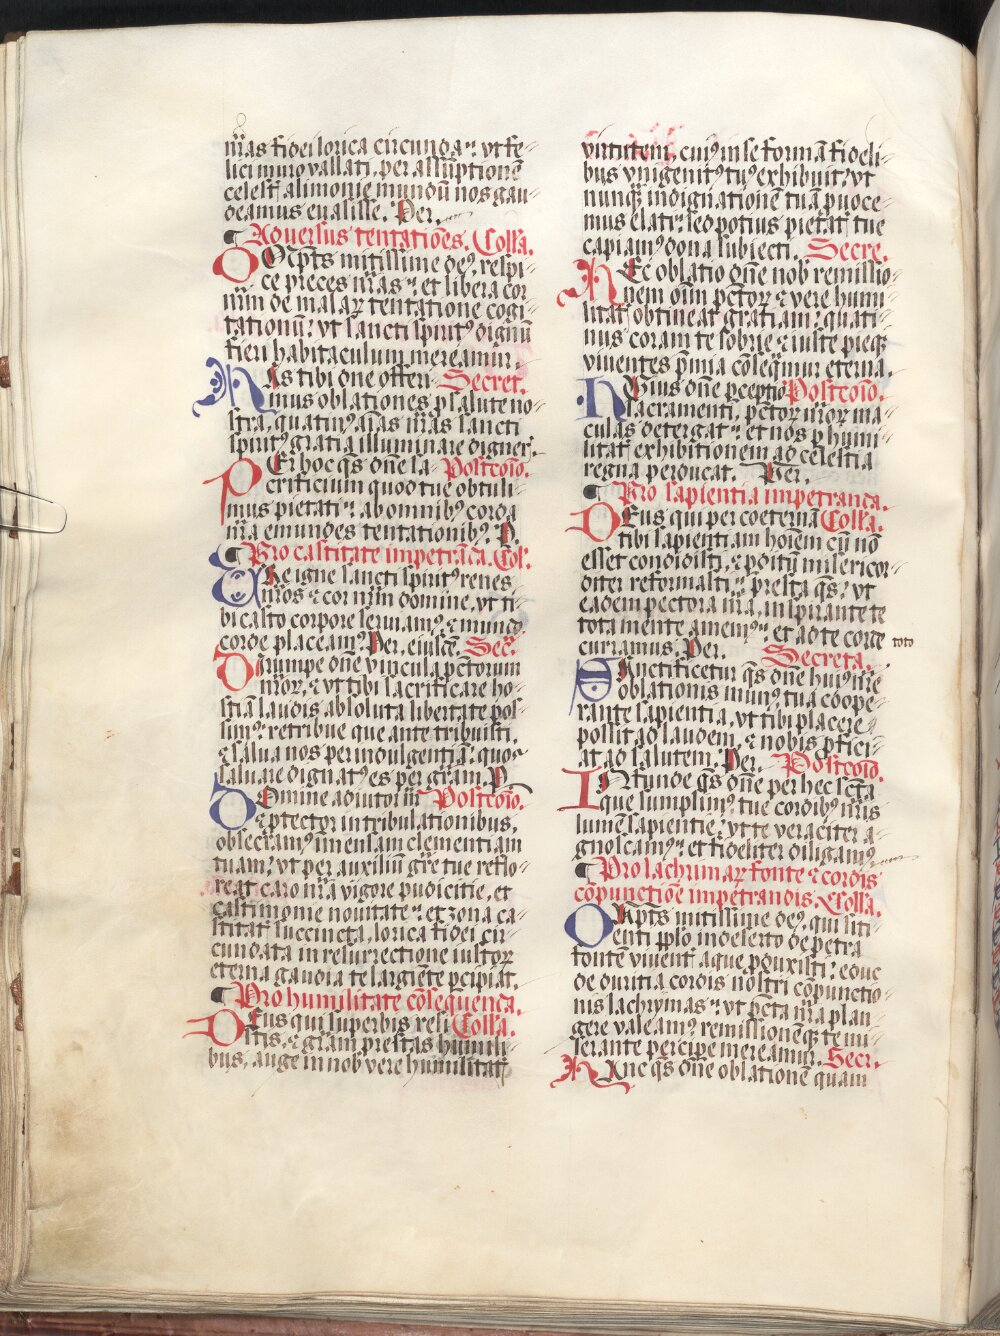 nr̄as fidei lorica circunda: vt fe-
lici muro vallati, per assūptionē
celest᷒ alimonie mundū nos gau-
deamus euasisse. Per.
¶ Aduersus tentatiōes. Coll̄a.
OMīpt̄s mitissime deꝰ, respi-
ce preces nr̄as: et libera cor
nrm̄ de malaꝝ tentatione cogi-
tationū: vt sancti spiritꝰ dignū
fieri habitaculum mereamur.
HAs tibi dn̄e offeri- Secret.
mus oblationes ꝓ salute no-
stra, quatinꝰ aīas nr̄as sancti
spiritꝰ gratia illuminare digner᷒.
PEr hoc qs̄ dn̄e sa- Postcōīo.
crificium quod tue obtuli-
mus pietati: ab omnibꝰ corda
nr̄a emundes tentationibꝰ. P.
¶ Pro castitate impetrāda. Col.
VRe igne sancti spiritꝰ renes
nr̄os ⁊ cor nrm̄ domine, vt ti-
bi casto corpore seruiamꝰ, ⁊ mundo
corde placeamꝰ. Per. eiusdē. Sec̄.
DIrumpe dn̄e vincula pctōrum
nr̄oꝝ, ⁊ vt tibi sacrificare ho-
stiā laudis absoluta libertate pos-
simꝰ: retribue que ante tribuisti,
⁊ salua nos per indulgentiā: quos
saluare dignatꝰ es per gr̄am. P.
DOmine adiutor nr̄ Postcōīo.
⁊ ꝓtector in tribulationibus,
obsecramꝰ īmensam clementiam
tuam: vt per auxiliū gr̄e tue reflo-
reat caro nr̄a vigore pudicitie, et
castimonie nouitate: et zona ca-
stitat᷒ succincta, lorica fidei cir-
cundata in resurrectione iustoꝝ
eterna gaudia te largiēte ꝑcipiat.
¶ Pro humilitate cōsequenda.
DEus qui superbis resi- Coll̄a.
stis, ⁊ gr̄am prestas humili-
bus, auge in nob᷒ vere humilitat᷒
virtutem, cuiꝰ in se formā fideli-
bus vnigenitꝰ tuꝰ exhibuit: vt
nunꝙ̄ indignationē tuā ꝓuoce-
mus elati: sed potius pietat᷒ tue
capiamꝰ dona subiecti. Secre.
HEc oblatio dn̄e nob᷒ remissio-
nem oīm pctōꝝ ⁊ vere humi-
litat᷒ obtineat gratiam: quati-
nus coram te sobrie ⁊ iuste pieqꝫ
viuentes p̄mia cōseqmur eterna.
HUius dn̄e ꝑceptio Postcōīo.
sacramenti, pctōꝝ nr̄oꝝ ma-
culas detergat: et nos ꝑ humi-
litat᷒ exhibitionem ad celestia
regna perducat. Per.
¶ Pro sapientia impetranda.
DEus qui per coeternā Coll̄a.
tibi sapientiam hoīem cū nō
esset condidisti, ⁊ ꝑditū misericor-
diter reformasti: presta qs̄: vt
eadem pectora nr̄a, inspirante te
tota mente amemꝰ: et ad te corde toto
curramus. Per. Secreta.
SAnctificetur qs̄ dn̄e huiꝰ nr̄e
oblationis munꝰ, tua coope-
rante sapientia, vt tibi placere
possit ad laudem, ⁊ nobis ꝓfici-
at ad salutem. Per. Postcoīo.
INfunde qs̄ dn̄e per hec sctā
que sumpsimꝰ, tue cordibꝰ nr̄is
lumē sapientie: vt te veraciter a-
gnoscamꝰ: et fideliter diligamꝰ
¶ Pro lachrimaꝝ fonte ⁊ cordis
cōpunctiōe impetrandis. Coll̄a.
OMīpt̄s mitissime deꝰ, qui siti-
enti pplo in deserto de petra
fontē viuent᷒ aque ꝓduxisti: educ
de duritia cordis nostri cōpunctio-
nis lachrymas: vt pctā nr̄a plan-
gere valeamꝰ remissionēqꝫ te mi-
serante percipe mereamur. Secr.
HAnc qs̄ dn̄e oblationē quam